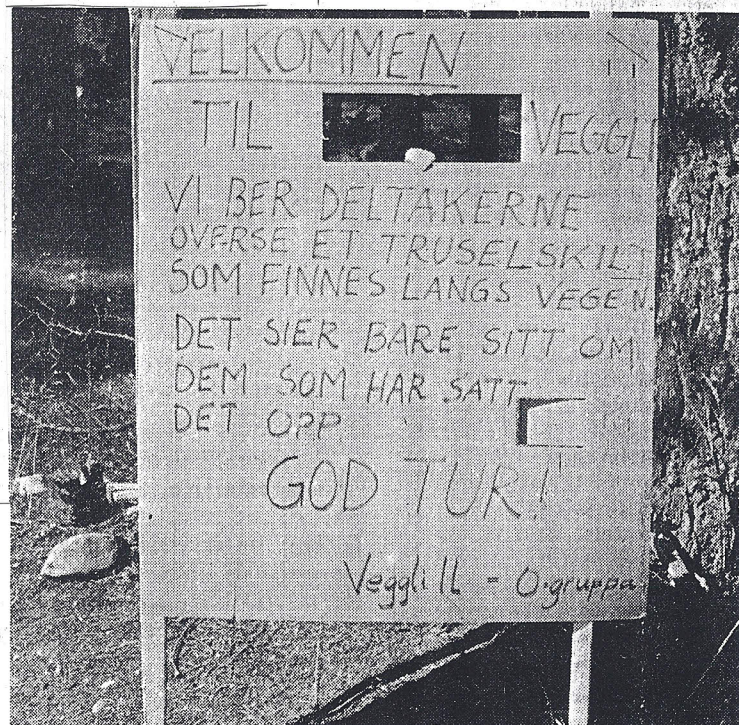 VELKOMMEN
TIL VEGGLI
VI BER DELTAKERNE
OVERSE ET TRUSELSKILT
SOM FINNES LANGS VEGEN.
DET SIER BARE SITT OM
DEM SOM HAR SATT
DET OPP
GOD TUR!
Veggli IL - O.gruppa